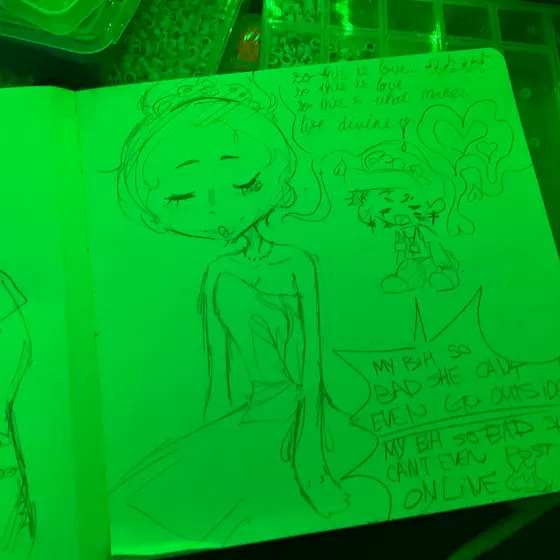 so this is love..
so this is love
so this is what makes
life divine
MY BIH SO
BAD SHE CANT
EVEN GO OUTSIDE
MY BIH SO BAD
CANT EVEN POST
ONLINE